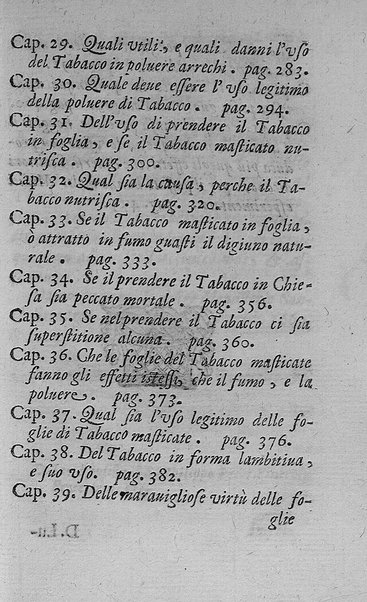 Cap. 29. Quali utili, e quali danni l'vſo
del Tabacco in poluere arrechi. pag. 283.
Cap. 30. Quale deue eſſere l'vſo legitimo
della poluere di Tabacco. pag. 294.
Cap. 31. Dell'vſo di prendere il Tabacco
in foglia, e ſe il Tabacco maſticato nu-
triſca. pag. 300.
Cap. 32. Qual ſia la cauſa, perche il Ta-
bacco nutriſca. pag. 320.
Cap. 33. Se il Tabacco maſticato in foglia,
ò attratto in fumo guaſti il digiuno natu-
rale. pag. 333.
Cap. 34. Se il prendere il Tabacco in Chie-
ſa ſia peccato mortale. pag. 356.
Cap. 35. Se nel prendere il Tabacco ci ſia
ſuperſtitione alcuna. pag. 360.
Cap. 36. Che le foglie del Tabacco maſticate
fanno gli effetti iſteſſi, che il fumo, e la
poluere. pag. 373.
Cap. 37. Qual ſia l'vſo legitimo delle fo-
glie di Tabacco maſticate. pag. 376.
Cap. 38. Del Tabacco in forma lambitiua,
e ſuo vſo. pag. 382.
Cap. 39. Delle marauiglioſe virtù delle fo-
glie